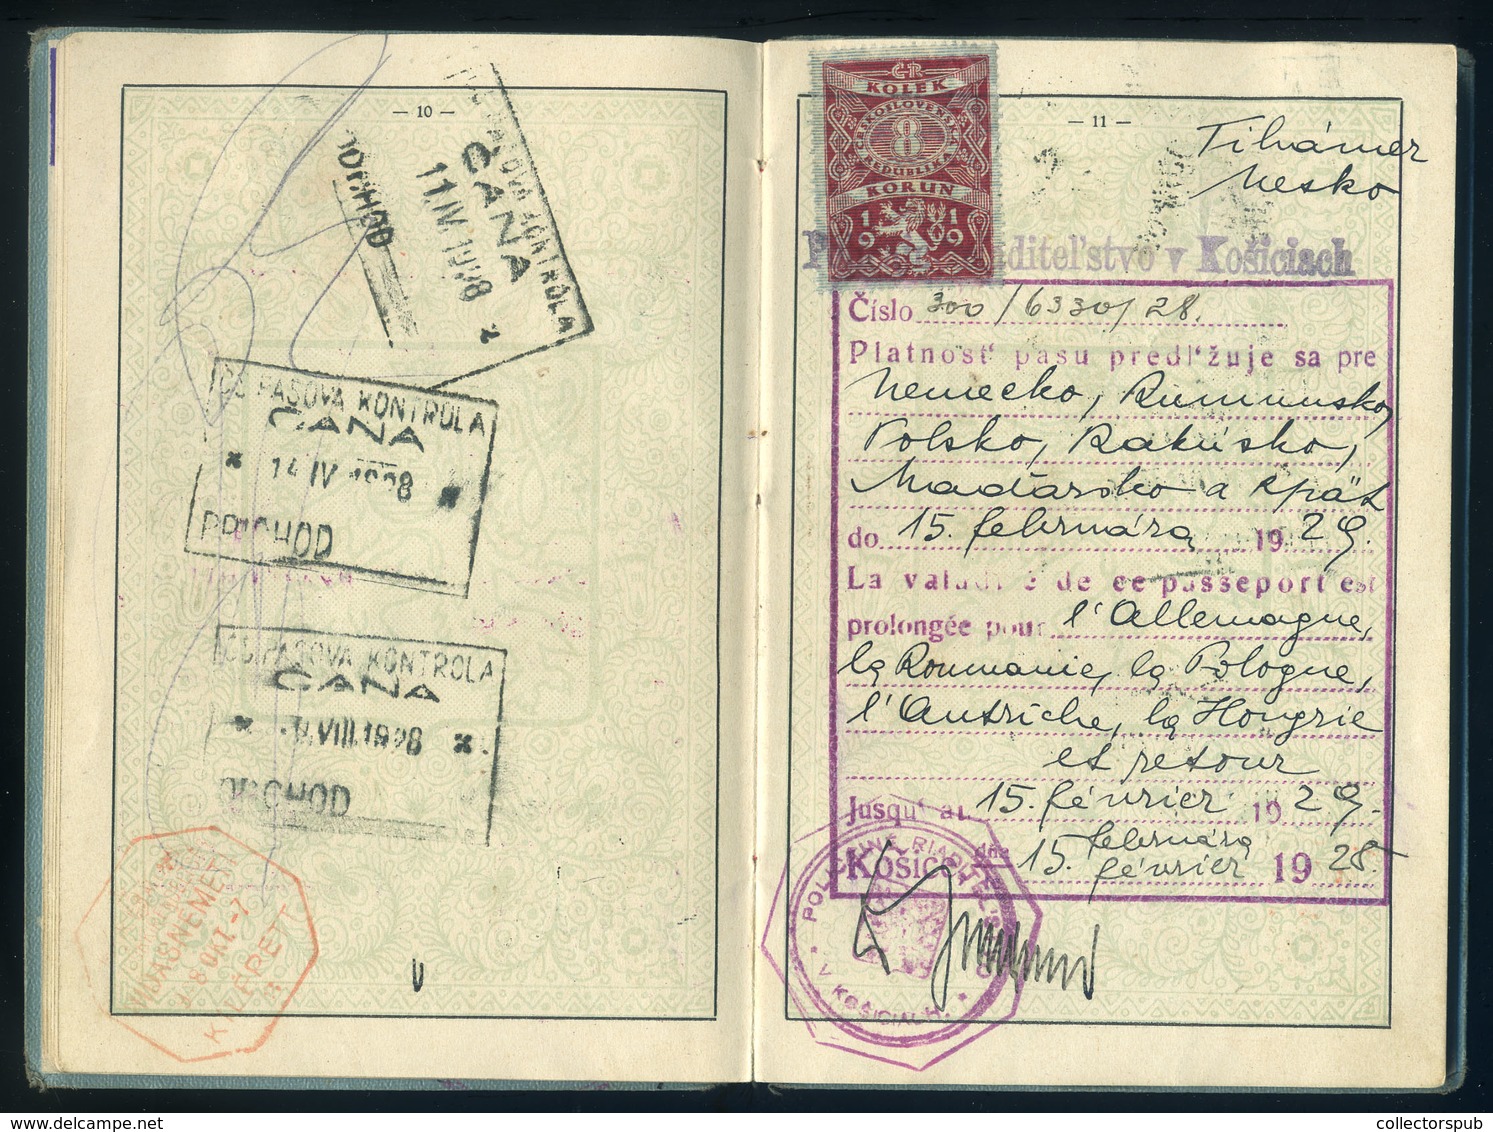 — 10 —
ČS. PASOVÁ KONTROLA
ČAŇA
11.IV.1928
ODCHOD
ČS. PASOVÁ KONTROLA
ČAŇA
14 IV 1928
PRICHOD
ČS. PASOVÁ KONTROLA
ČAŇA
VIII.1928
ODCHOD
HIDASNÉMETI
OKT -7
KILÉPETT
— 11 —
ČSR
KOLEK
ČESKOSLOVENSKÁ
8
REPUBLIKA
KORUN
1919
Tihámer
Mesko
riaditeľstvo v Košiciach
Číslo 300/6330/28.
Platnosť pasu predlžuje sa pre
Nemecko, Rumunsko,
Polsko, Rakúsko,
Maďarsko a zpät
do 15. februára 1929.
La validité de ce passeport est
prolongée pour l'Allemagne,
la Roumanie, la Pologne,
l'Autriche, la Hongrie
et retour
Jusqu'au 15. février 1929.
februára
Košice dňa 15. février 1928
POLICAJNÉ RIADITEĽSTVO
V KOŠICIACH.
collectorspub